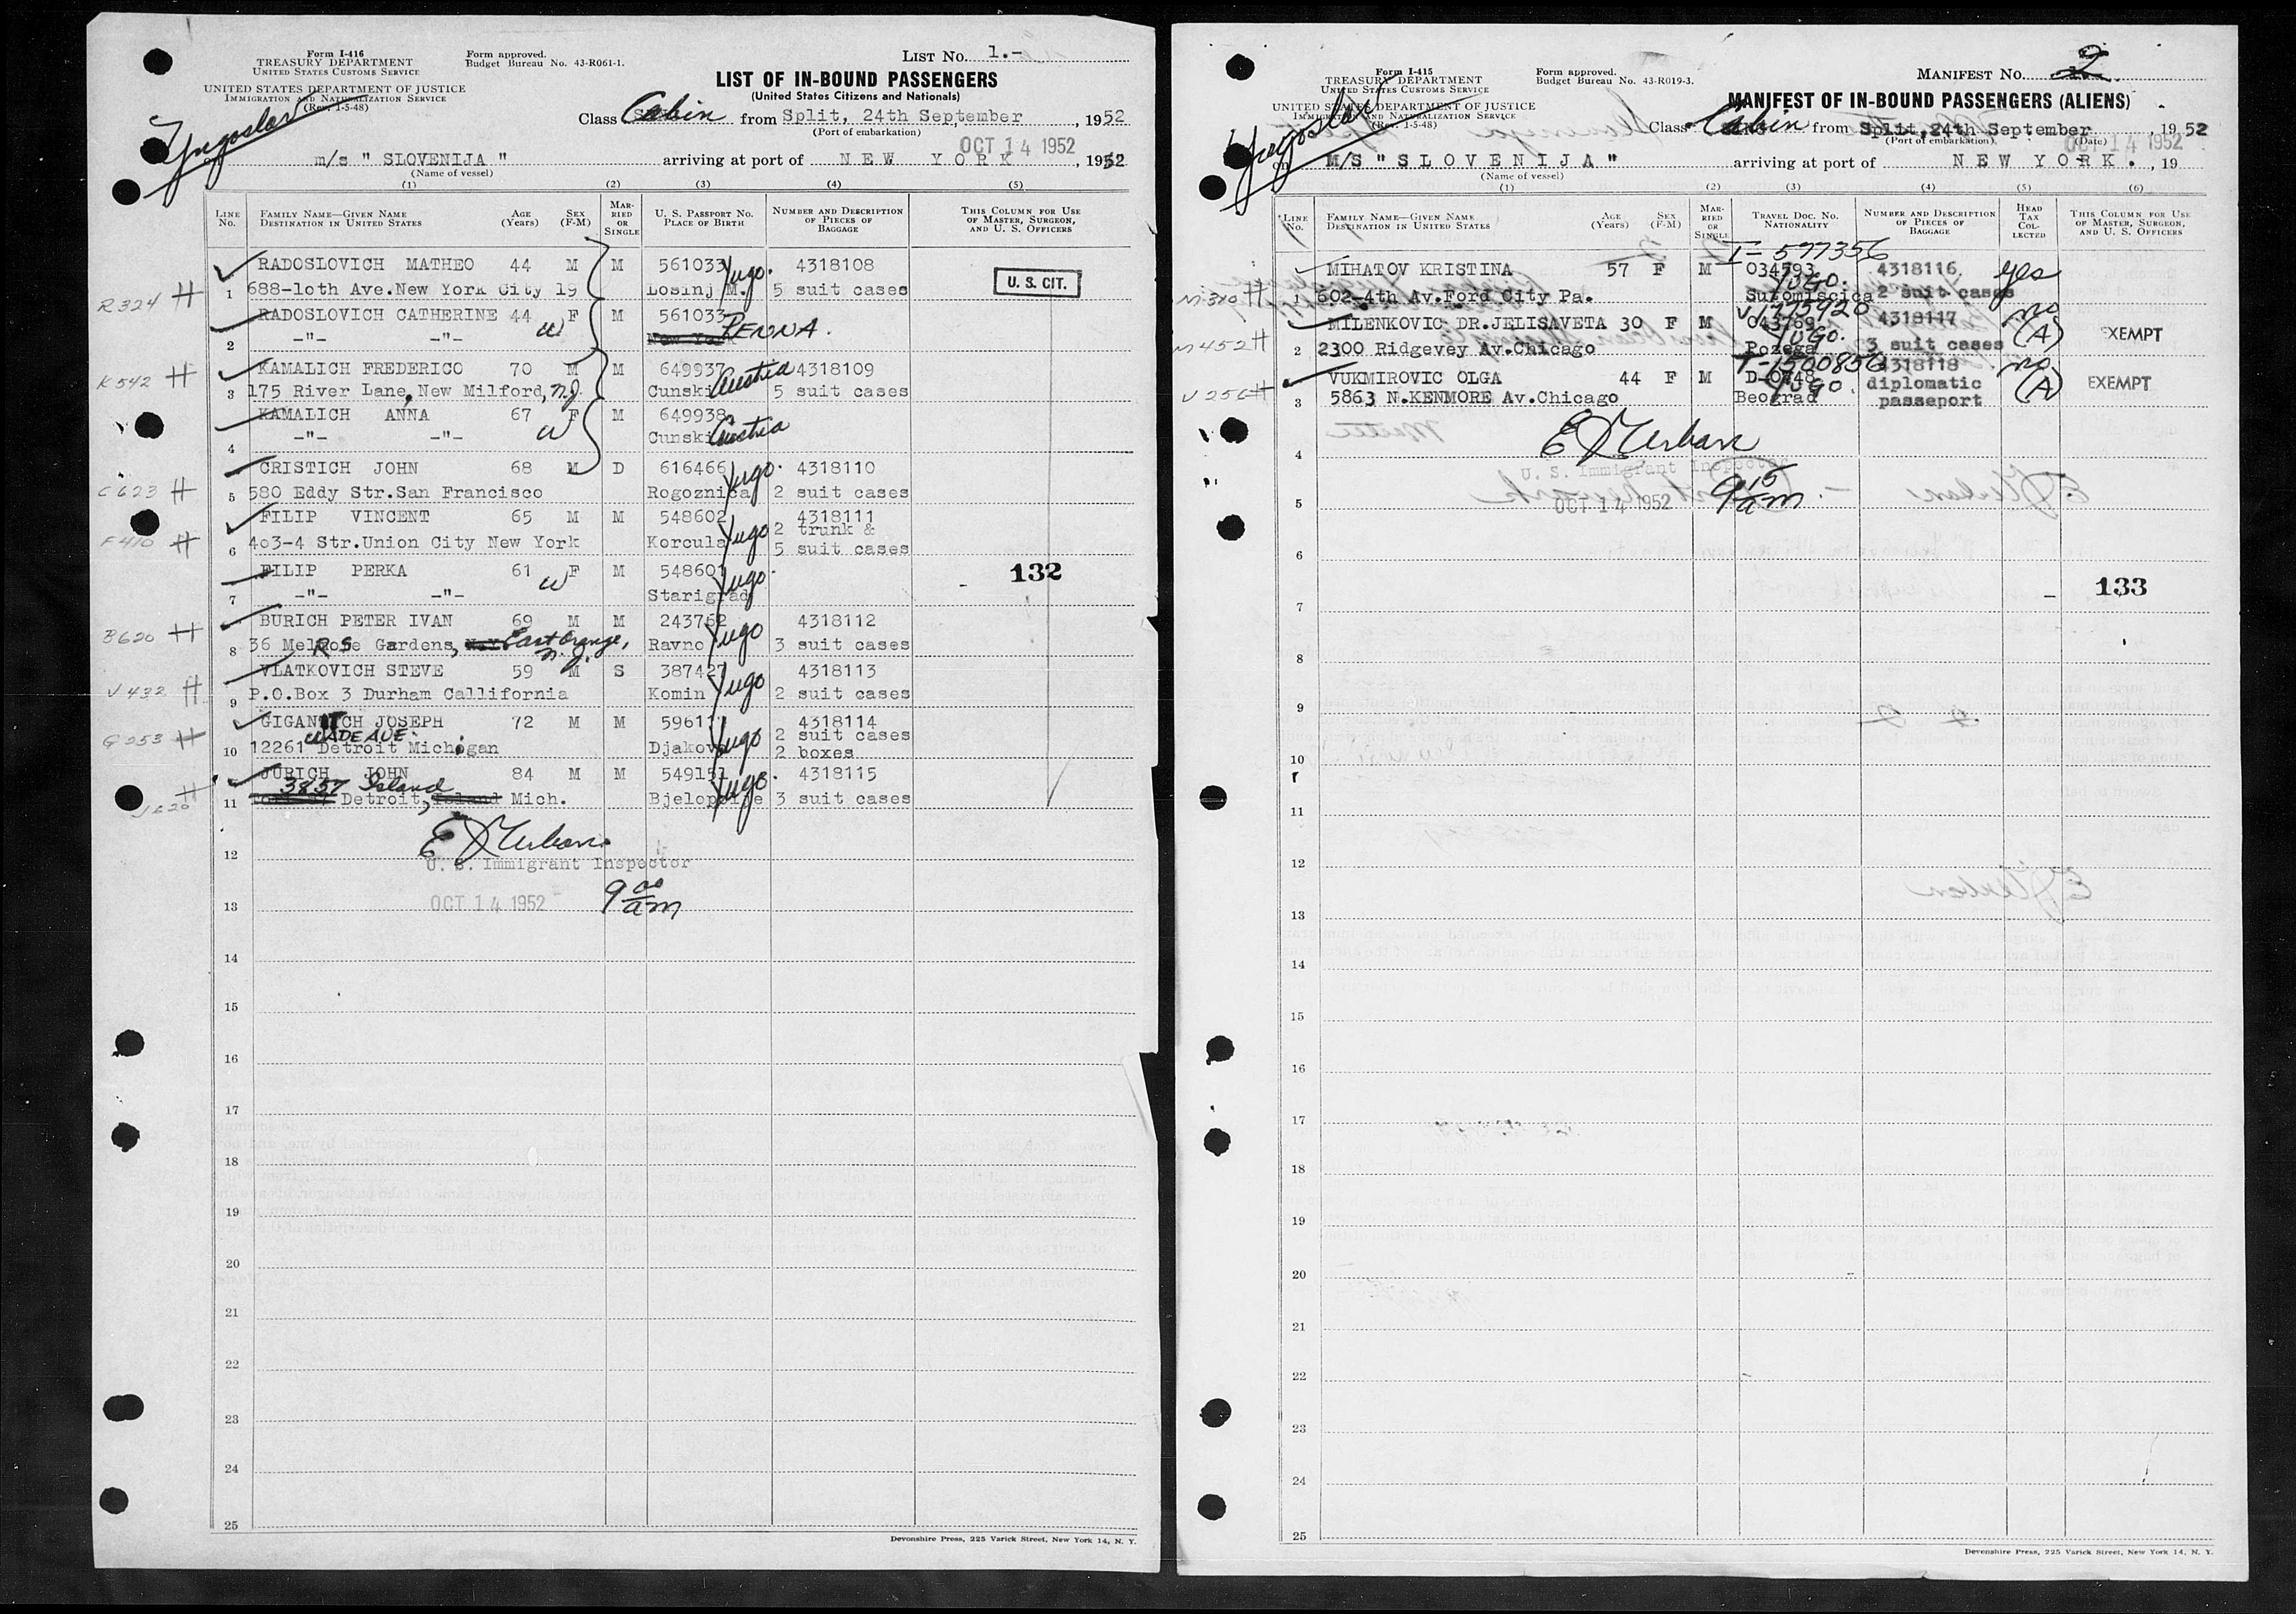 Form I-416
TREASURY DEPARTMENT
UNITED STATES CUSTOMS SERVICE
UNITED STATES DEPARTMENT OF JUSTICE
IMMIGRATION AND NATURALIZATION SERVICE
(Rev. 1-5-48)
Form approved.
Budget Bureau No. 43-R061-1.
LIST NO. 1.-
LIST OF IN-BOUND PASSENGERS
(United States Citizens and Nationals)
Yugoslav
Class Cabin from Split, 24th September, 1952
(Port of embarkation)
OCT 14 1952
on m/s " SLOVENIJA " arriving at port of NEW YORK, 1952
(Name of vessel)
(1) (2) (3) (4) (5)
LINE NO. FAMILY NAME—GIVEN NAME DESTINATION IN UNITED STATES AGE (Years) SEX (F-M) MARRIED OR SINGLE U. S. PASSPORT NO. PLACE OF BIRTH NUMBER AND DESCRIPTION OF PIECES OF BAGGAGE THIS COLUMN FOR USE OF MASTER, SURGEON, AND U. S. OFFICERS
RADOSLOVICH MATHEO 44 M M 561033 Yugo. 4318108
R324 H 1 688-10th Ave.New York City 19 Losinj M. 5 suit cases U. S. CIT.
RADOSLOVICH CATHERINE 44 F M 561033
2 -"- -"- W New York PENNA.
KAMALICH FREDERICO 70 M M 649937 4318109
K542 H 3 175 River Lane, New Milford, N.J. Cunski Austria 5 suit cases
KAMALICH ANNA 67 F M 649938
4 -"- -"- W Cunski Austria
CRISTICH JOHN 68 M D 616466 Yugo. 4318110
C623 H 5 580 Eddy Str.San Francisco Rogoznica 2 suit cases
FILIP VINCENT 65 M M 548602 4318111
F410 H 6 403-4 Str.Union City New York Korcula Yugo 2 trunk & 5 suit cases
FILIP PERKA 61 F M 548601 132
7 -"- -"- W Starigrad Yugo.
BURICH PETER IVAN 69 M M 243762 4318112
B620 H 8 36 Melrose Gardens, East Orange, N.J. Ravno Yugo 3 suit cases
VLATKOVICH STEVE 59 M S 387427 4318113
V432 H 9 P.O.Box 3 Durham Callifornia Komin Yugo 2 suit cases
GIGANTICH JOSEPH 72 M M 4318114
WADE AVE.
G253 H 10 12261 Detroit Michigan Yugo 2 suit cases 2 boxes
JURICH JOHN 84 M M 549151 4318115
3857 Island
J620 H 11 Detroit, Island Mich. Yugo. 3 suit cases
E D Urban
12 U. S. Immigrant Inspector
OCT 14 1952 9 00 am
13
14
15
16
17
18
19
20
21
22
23
24
25
Devonshire Press, 225 Varick Street, New York 14, N. Y.
Form I-415
TREASURY DEPARTMENT
UNITED STATES CUSTOMS SERVICE
UNITED STATES DEPARTMENT OF JUSTICE
IMMIGRATION AND NATURALIZATION SERVICE
(Rev. 1-5-48)
Form approved.
Budget Bureau No. 43-R019-3.
MANIFEST NO. 2
MANIFEST OF IN-BOUND PASSENGERS (ALIENS)
Yugoslav
Class Cabin from Split, 24th September, 1952
(Port of embarkation) (Date)
OCT 14 1952
on M/S "SLOVENIJA" arriving at port of NEW YORK., 19
(Name of vessel)
(1) (2) (3) (4) (5) (6)
LINE NO. FAMILY NAME—GIVEN NAME DESTINATION IN UNITED STATES AGE (Years) SEX (F-M) MARRIED OR SINGLE TRAVEL DOC. NO. NATIONALITY NUMBER AND DESCRIPTION OF PIECES OF BAGGAGE HEAD TAX COLLECTED THIS COLUMN FOR USE OF MASTER, SURGEON, AND U. S. OFFICERS
I-577356
MIHATOV KRISTINA 57 F M 034793 4318116 yes
YUGO.
M310 H 1 602-4th Av.Ford City Pa. Sutomiscica 2 suit cases
V1775920
MILENKOVIC DR.JELISAVETA 30 F M 043769 4318117 no
YUGO.
M452 H 2 2300 Ridgevey Av.Chicago Pozega 3 suit cases (A) EXEMPT
T-1500856
VUKMIROVIC OLGA 44 F M D-0748 4318118 no
YUGO.
V256 H 3 5863 N.KENMORE Av.Chicago Beograd diplomatic passeport (A) EXEMPT
E D Urban
4 U. S. Immigrant Inspector
5 OCT 14 1952 9 15 am
6
133
7
8
9
10
11
12
13
14
15
16
17
18
19
20
21
22
23
24
25
Devonshire Press, 225 Varick Street, New York 14, N. Y.